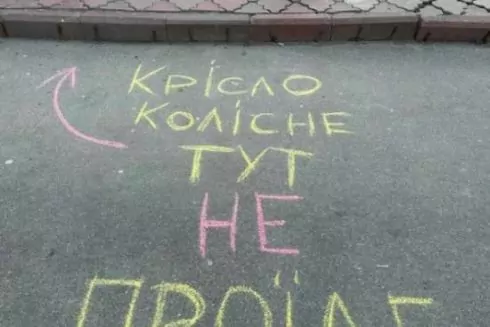 КРІСЛО
КОЛІСНЕ
ТУТ
НЕ
ПРОЇДЕ